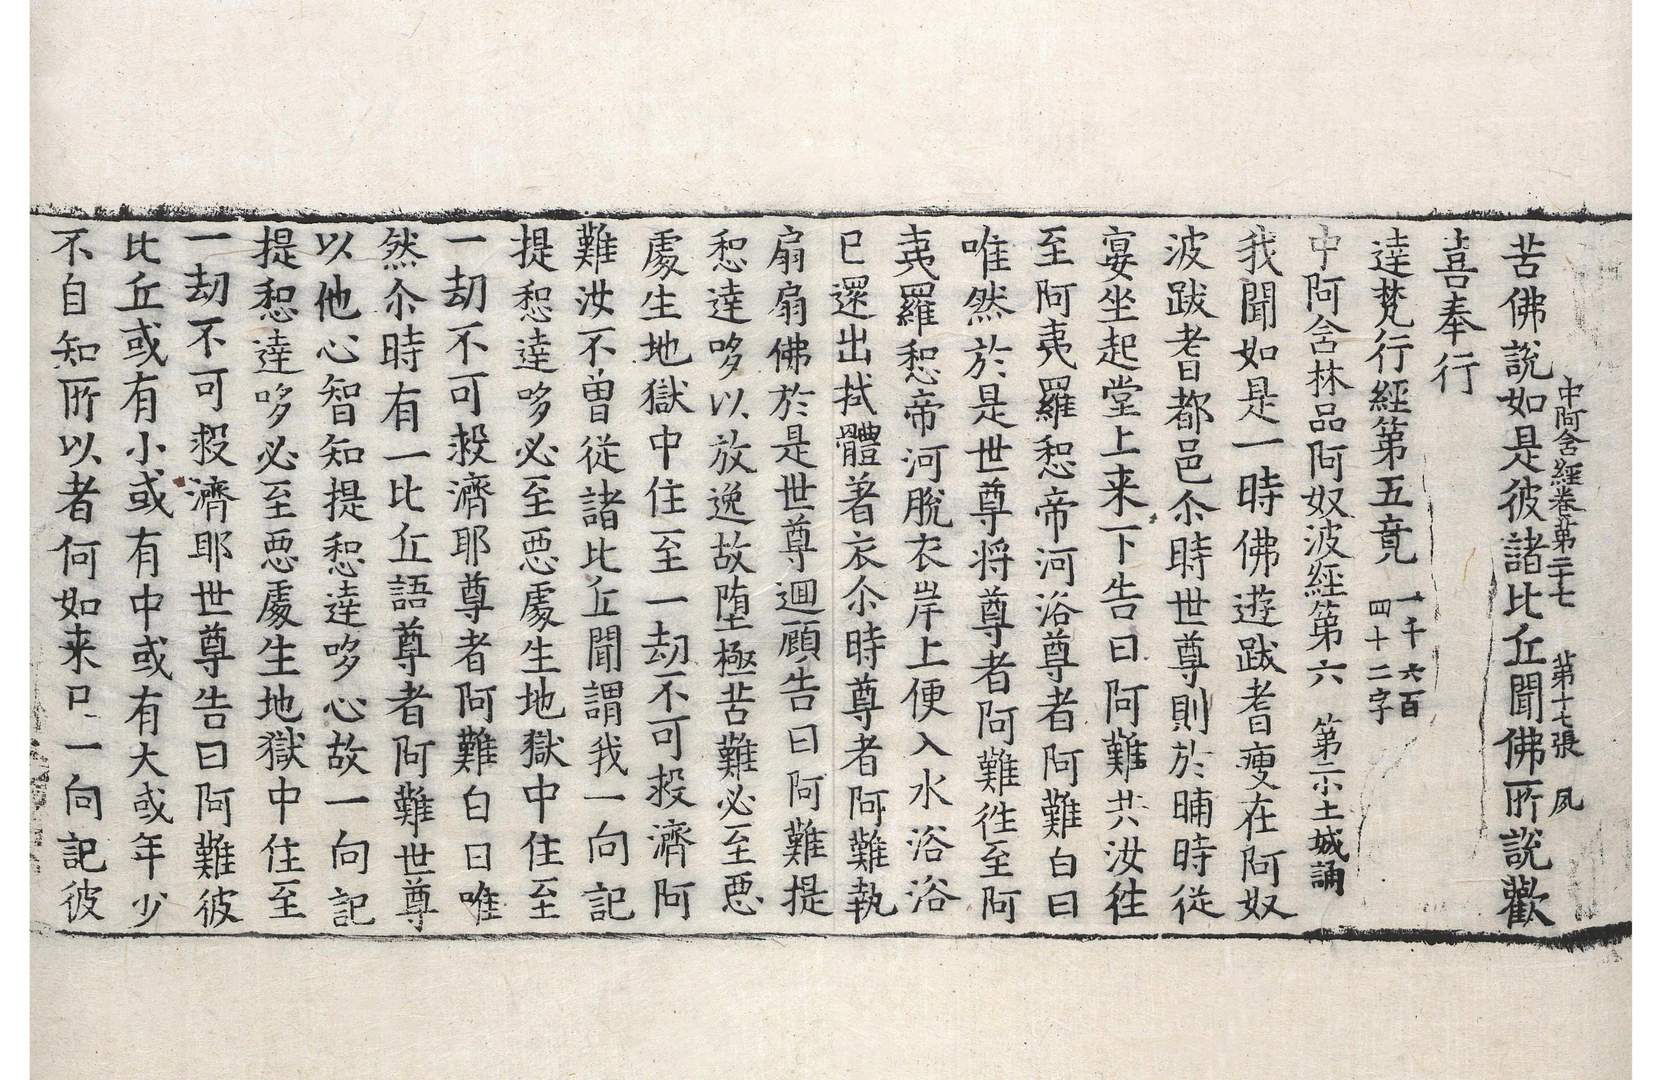 中阿含經卷第二十七　第十七張　夙
苦佛說如是彼諸比丘聞佛所說歡
喜奉行
達梵行經第五竟 一千六百四十二字
中阿含林品阿奴波經第六 第二小土城誦
我聞如是一時佛遊跋耆瘦在阿奴
波跋耆都邑尒時世尊則於晡時從
宴坐起堂上来下告曰阿難共汝往
至阿夷羅惒帝河浴尊者阿難白曰
唯然於是世尊将尊者阿難往至阿
夷羅惒帝河脫衣岸上便入水浴浴
已還出拭體著衣尒時尊者阿難執
扇扇佛於是世尊迴顧告曰阿難提
惒達哆以放逸故墮極苦難必至惡
處生地獄中住至一劫不可救濟阿
難汝不曾從諸比丘聞謂我一向記
提惒達哆必至惡處生地獄中住至
一劫不可救濟耶尊者阿難白曰唯
然尒時有一比丘語尊者阿難世尊
以他心智知提惒達哆心故一向記
提惒達哆必至惡處生地獄中住至
一劫不可救濟耶世尊告曰阿難彼
比丘或有小或有中或有大或年少
不自知所以者何如来已一向記彼